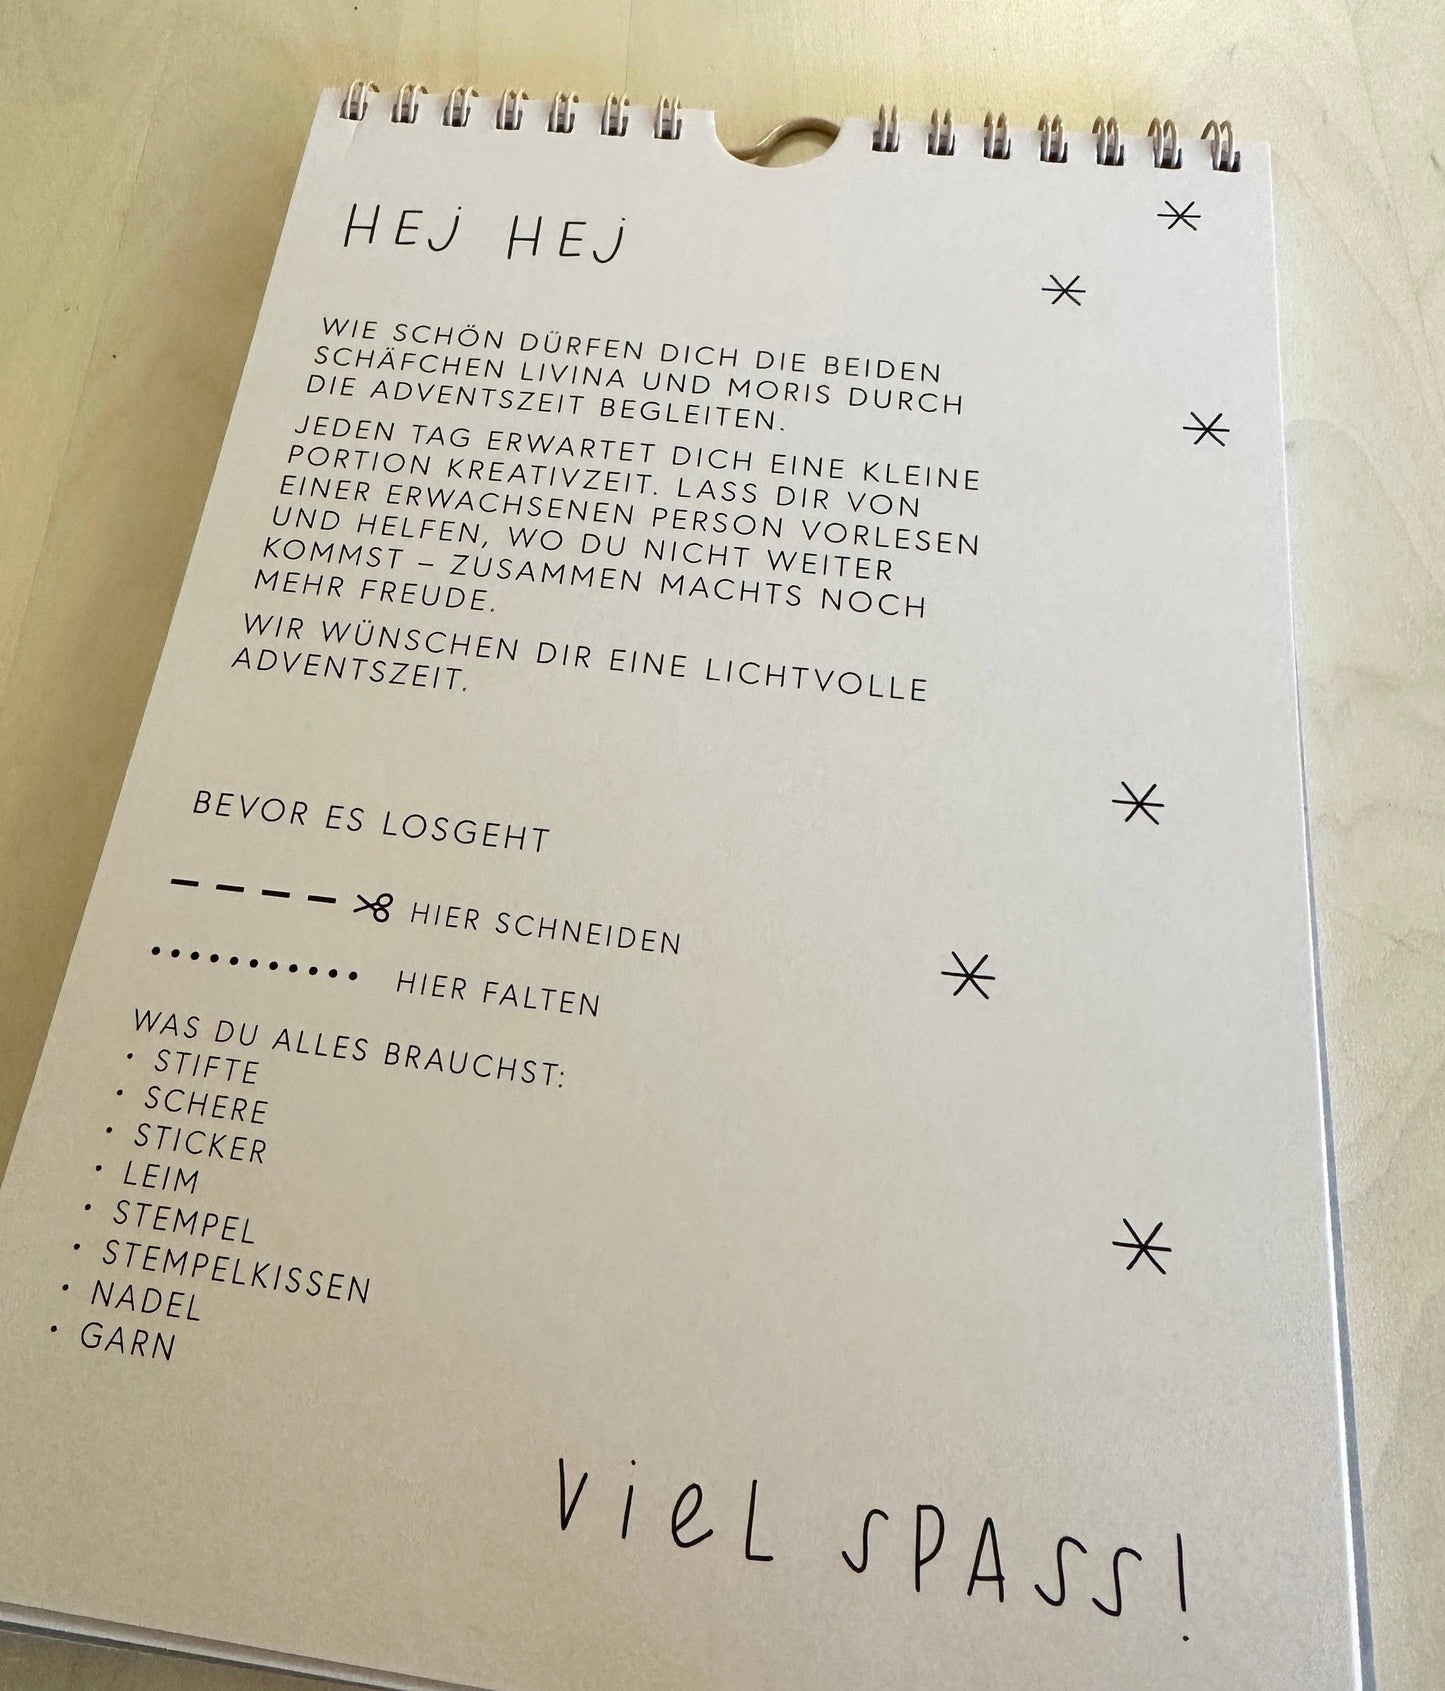 HEj HEj
WIE SCHÖN DÜRFEN DICH DIE BEIDEN
SCHÄFCHEN LIVINA UND MORIS DURCH
DIE ADVENTSZEIT BEGLEITEN.
JEDEN TAG ERWARTET DICH EINE KLEINE
PORTION KREATIVZEIT. LASS DIR VON
EINER ERWACHSENEN PERSON VORLESEN
UND HELFEN, WO DU NICHT WEITER
KOMMST – ZUSAMMEN MACHTS NOCH
MEHR FREUDE.
WIR WÜNSCHEN DIR EINE LICHTVOLLE
ADVENTSZEIT.
BEVOR ES LOSGEHT
HIER SCHNEIDEN
HIER FALTEN
WAS DU ALLES BRAUCHST:
• STIFTE
• SCHERE
• STICKER
• LEIM
• STEMPEL
• STEMPELKISSEN
• NADEL
• GARN
VieL SPASS!